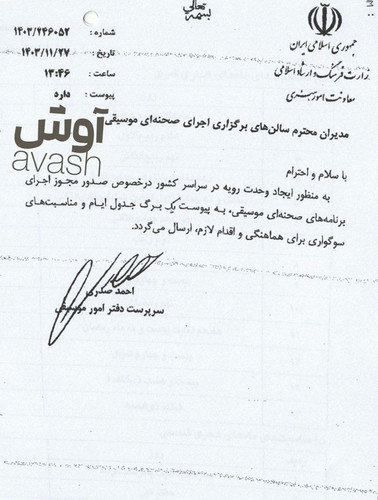 بسمه تعالی
جمهوری اسلامی ایران
وزارت فرهنگ و ارشاد اسلامی
معاونت امور هنری
شماره : ۱۴۰۳/۲۴۶۰۵۲
تاریخ : ۱۴۰۳/۱۱/۲۷
ساعت : ۱۳:۴۶
پیوست : دارد
آوش
avash
مدیران محترم سالن‌های برگزاری اجرای صحنه‌ای موسیقی
با سلام و احترام
به منظور ایجاد وحدت رویه در سراسر کشور درخصوص صدور مجوز اجرای
برنامه‌های صحنه‌ای موسیقی، به پیوست یک برگ جدول ایام و مناسبت‌های
سوگواری برای هماهنگی و اقدام لازم، ارسال می‌گردد.
احمد صدری
سرپرست دفتر امور موسیقی